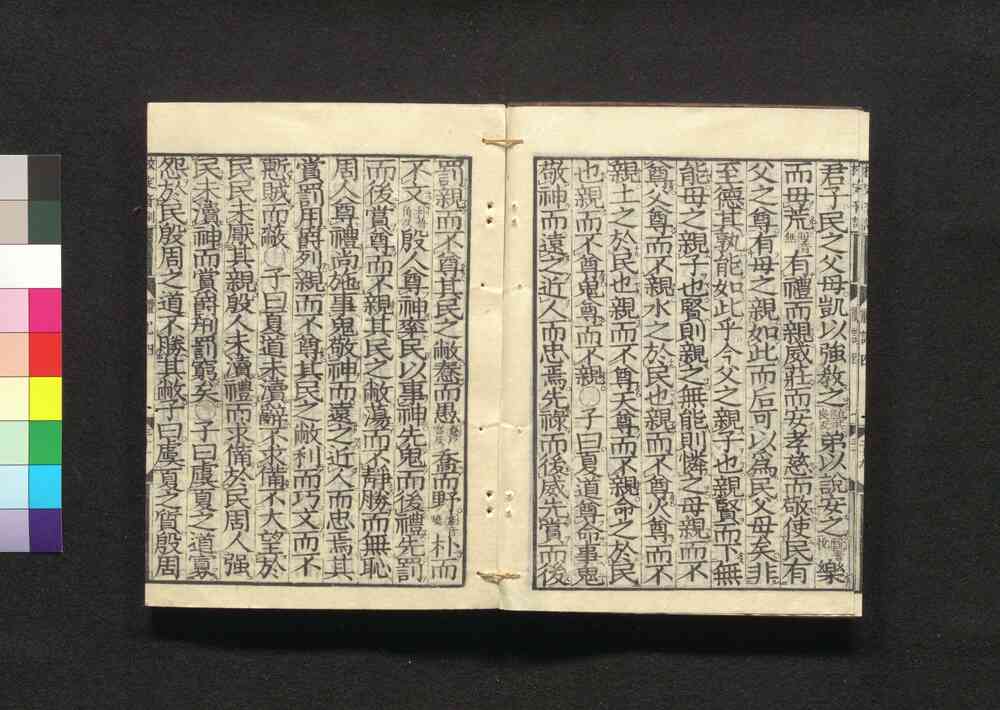 君子民之父母凱以強教之弟以說安之樂
而毋荒有禮而親威莊而安孝慈而敬使民有
父之尊有母之親如此而后可以為民父母矣非
至德其孰能如此乎今父之親子也親賢而下無
能母之親子也賢則親之無能則憐之母親而不
尊父尊而不親水之於民也親而不尊火尊而不
親土之於民也親而不尊天尊而不親命之於民
也親而不尊鬼尊而不親○子曰夏道尊命事鬼
敬神而遠之近人而忠焉先祿而後威先賞而後
罰親而不尊其民之敝惷而愚喬而野朴而
不文殷人尊神率民以事神先鬼而後禮先罰
而後賞尊而不親其民之敝蕩而不靜勝而無恥
周人尊禮尚施事鬼敬神而遠之近人而忠焉其
賞罰用爵列親而不尊其民之敝利而巧文而不
慙賊而蔽○子曰夏道未瀆辭不求備不大望於
民民未厭其親殷人未瀆禮而求備於民周人強
民未瀆神而賞爵刑罰窮矣○子曰虞夏之道寡
怨於民殷周之道不勝其敝子曰虞夏之質殷周